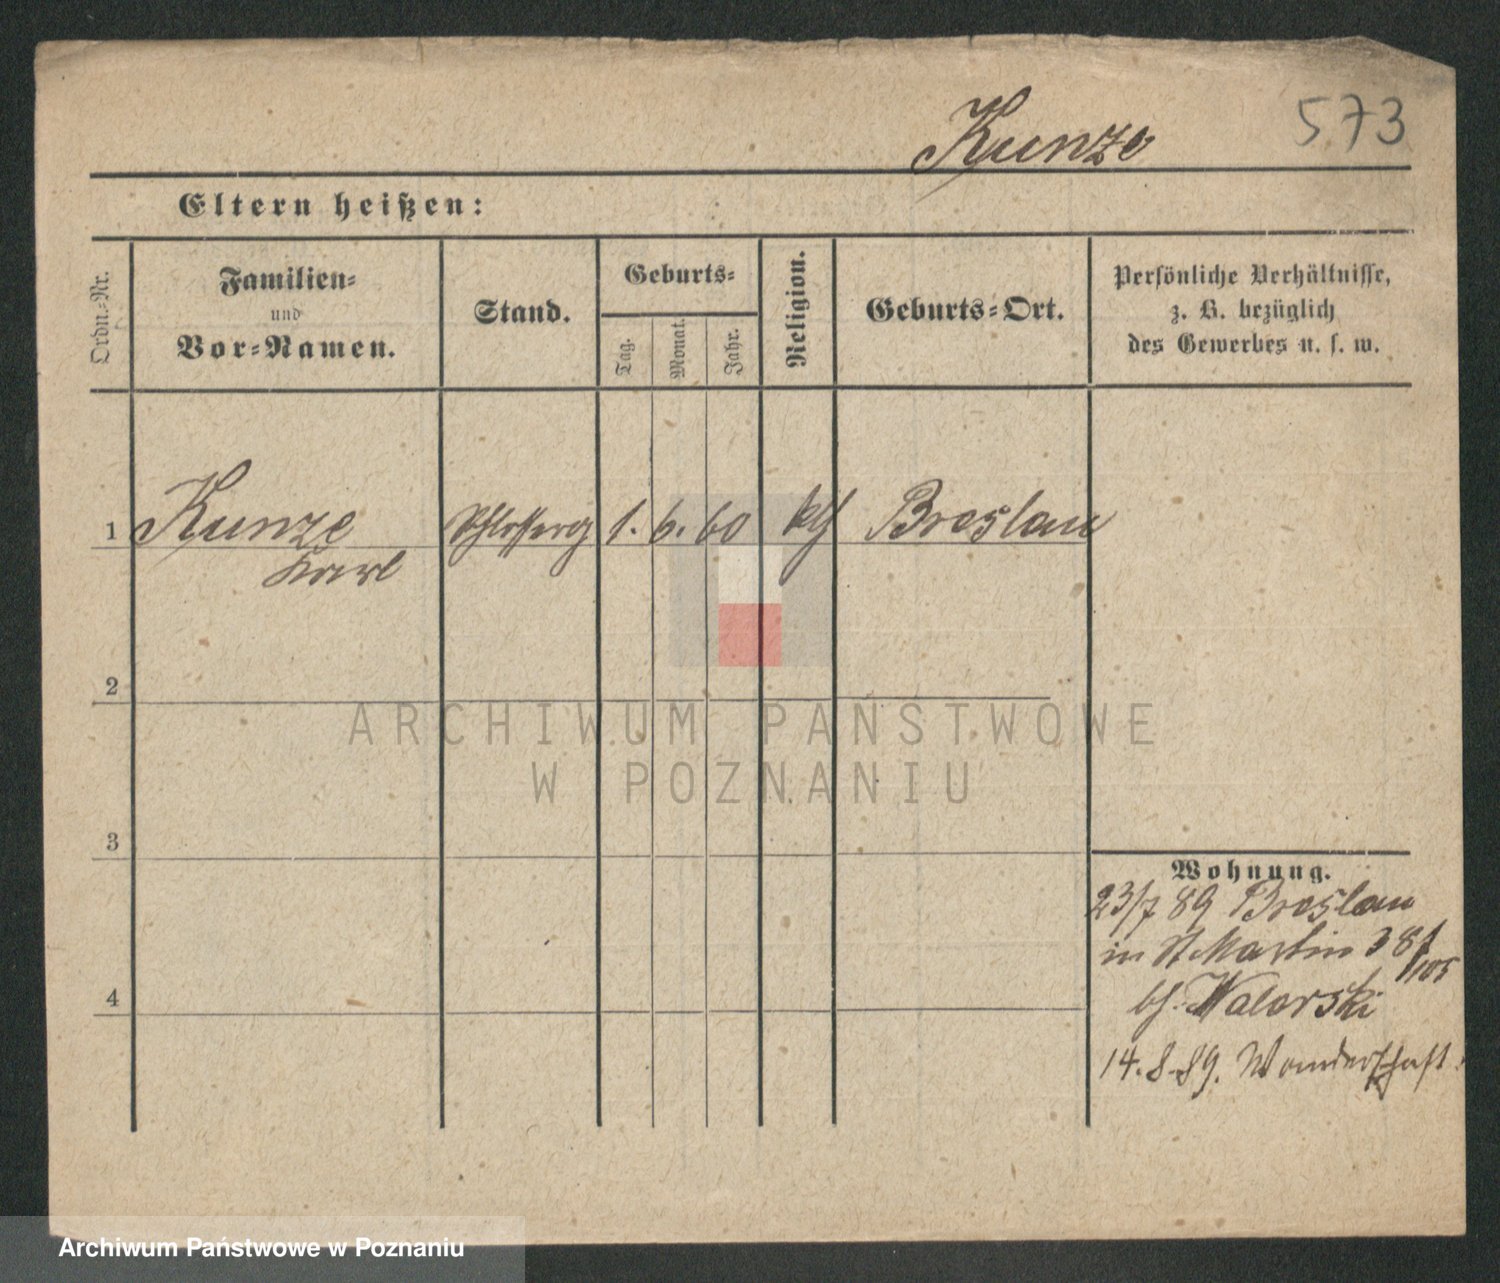 Kunze 573
Eltern heißen:
Ordn.-Nr.
Familien-
und
Vor-Namen.
Stand.
Geburts-
Tag.
Monat.
Jahr.
Religion.
Geburts-Ort.
Persönliche Verhältnisse,
z. B. bezüglich
des Gewerbes u. s. w.
1 Kunze Schlosserg 1. 6. 60 kth Breslau
Karl
2
ARCHIWUM PAŃSTWOWE
W POZNANIU
3
Wohnung.
23/7 89 Breslau
in St Martin 38
bei
4
14.8.89. Wanderschaft.
Archiwum Państwowe w Poznaniu